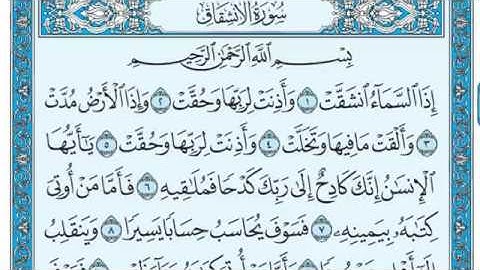 سُورَةُ الانشِقَاقِ
بِسْمِ ٱللَّهِ ٱلرَّحْمَٰنِ ٱلرَّحِيمِ
إِذَا ٱلسَّمَآءُ ٱنشَقَّتْ ١ وَأَذِنَتْ لِرَبِّهَا وَحُقَّتْ ٢ وَإِذَا ٱلْأَرْضُ مُدَّتْ
٣ وَأَلْقَتْ مَا فِيهَا وَتَخَلَّتْ ٤ وَأَذِنَتْ لِرَبِّهَا وَحُقَّتْ ٥ يَٰٓأَيُّهَا
ٱلْإِنسَٰنُ إِنَّكَ كَادِحٌ إِلَىٰ رَبِّكَ كَدْحًا فَمُلَٰقِيهِ ٦ فَأَمَّا مَنْ أُوتِىَ
كِتَٰبَهُۥ بِيَمِينِهِۦ ٧ فَسَوْفَ يُحَاسَبُ حِسَابًا يَسِيرًا ٨ وَيَنقَلِبُ